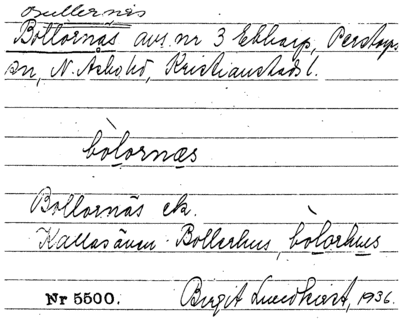 Bullernäs
Bollornäs avs. nr 3 Ebbarp, Perstorps
sn, N. Åsbo hd, Kristianstads l.
bòlornæs
Bollornäs ek.
Kallas även Bollerhus, bòlorhus
Nr 5500. Birgit Lundkvist, 1936.